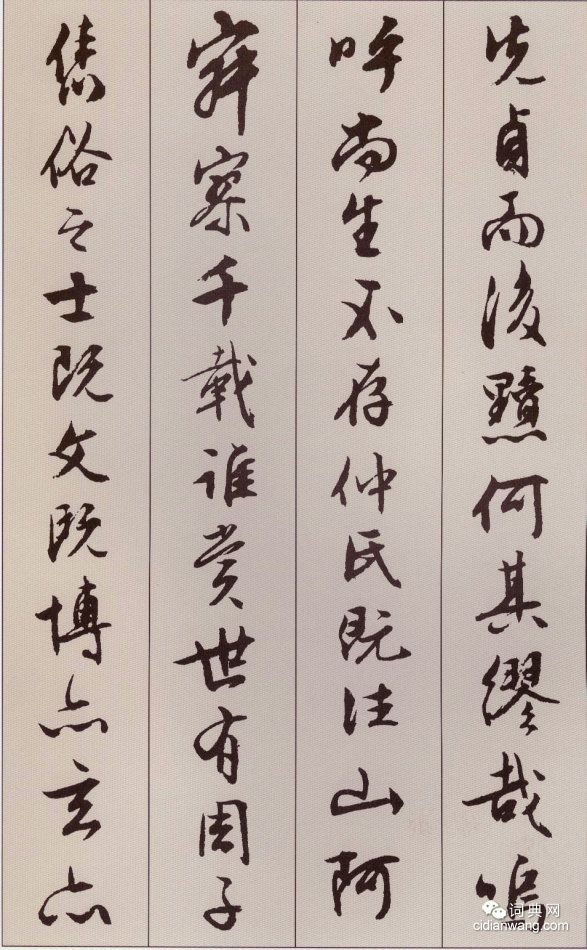 先貞而後黷何其繆哉嗚
呼尚生不存仲氏既往山阿
寂寥千載誰賞世有周子
儁俗之士既文既博亦玄亦
词典网
cidianwang.com